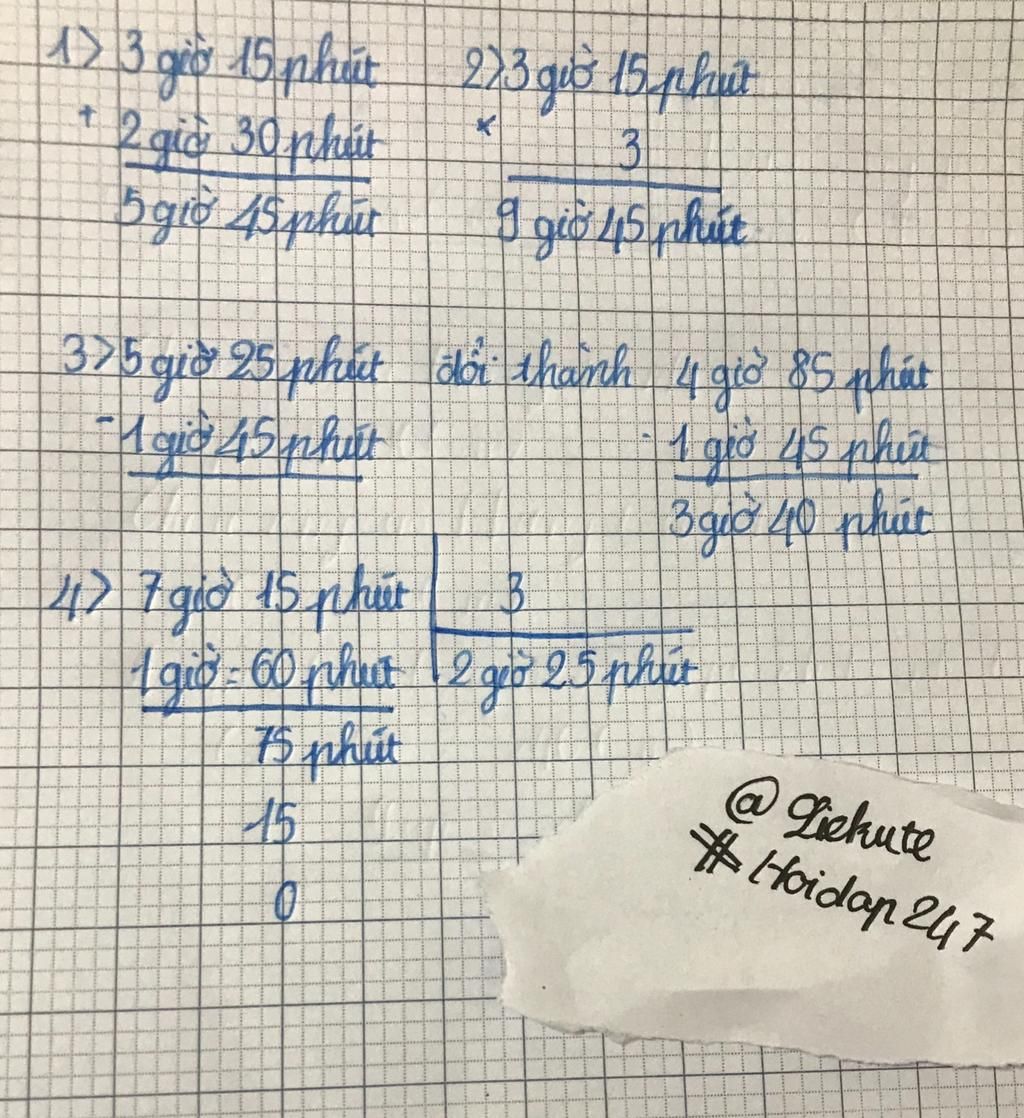 1> 3 giờ 15 phút
+ 2 giờ 30 phút
5 giờ 45 phút
2> 3 giờ 15 phút
× 3
9 giờ 45 phút
3> 5 giờ 25 phút đổi thành 4 giờ 85 phút
- 1 giờ 45 phút - 1 giờ 45 phút
3 giờ 40 phút
4> 7 giờ 15 phút 3
1 giờ = 60 phút 2 giờ 25 phút
75 phút
15
0
@Liekute
#Hoidap247